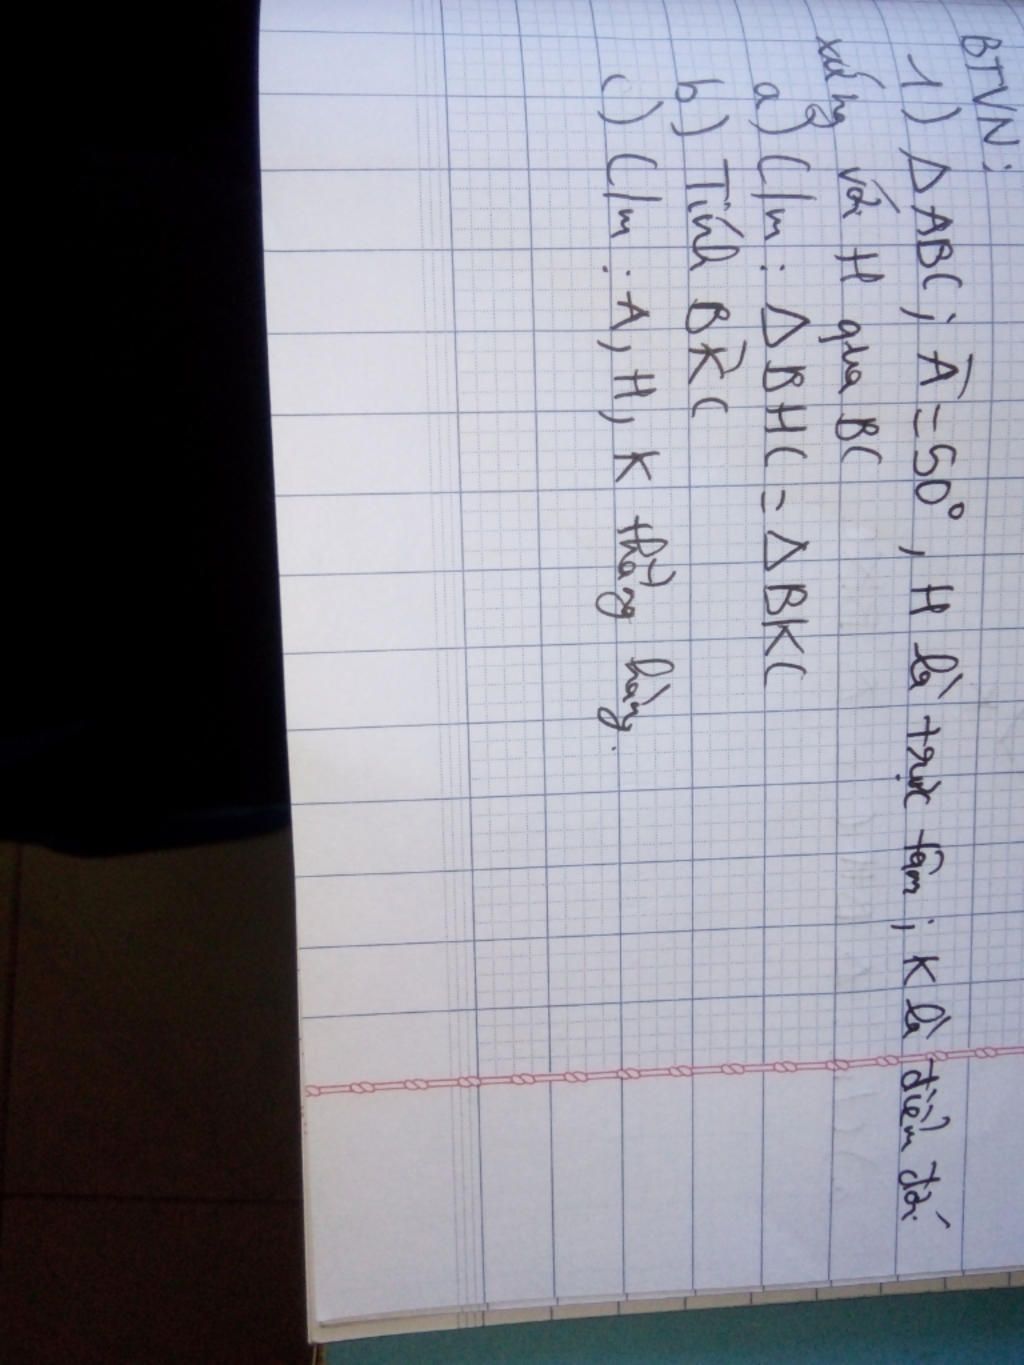 BTVN:
1) ΔABC; Â = 50°, H là trực tâm; K là điểm đối
xứng với H qua BC
a) C/m: ΔBHC = ΔBKC
b) Tính BK̂C
c) C/m: A, H, K thẳng hàng.